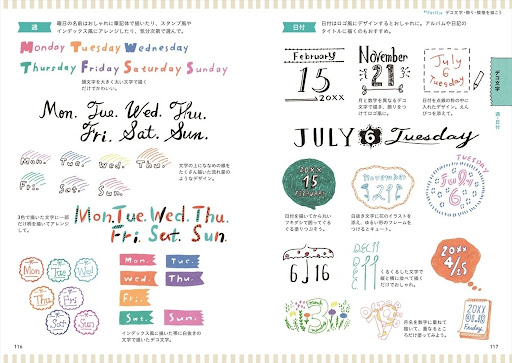 週
曜日の名前はおしゃれに筆記体で描いたり、スタンプ風や
インデックス風にアレンジしたり、気分次第で選んで。
Monday Tuesday Wednesday
Thursday Friday Saturday Sunday
頭文字を大きく太い文字で描く
だけでかわいい。
Mon. Tue. Wed. Thu.
Fri. Sat. Sun.
Mon. Tue. Wed. Thu.
Fri. Sat. Sun.
文字の上にななめの線を
たくさん描いた流れ星の
ようなデザイン。
3色で描いた文字に一部
だけ柄を描いてアレンジ
して。
Mon. Tue. Wed. Thu.
Fri. Sat. Sun.
Mon Tue Wed
Thu Fri
Sat Sun
Mon. Tue.
Wed. Thu.
Fri.
Sat. Sun.
インデックス風に描いた帯に白抜きの
文字で描いたデコ文字。
116
デコ文字・飾り・模様を描こう
日付
日付はロゴ風にデザインするとおしゃれに。アルバムや日記の
タイトルに描くのもおすすめ。
February
15
20XX
November
21
月と数字を異なるデコ
文字で描き、飾りをつ
けてロゴ風に。
July
6
Tuesday
日付を点線の枠の中に
入れたデザイン。えん
ぴつを添えて。
JULY 6 Tuesday
20XX
15
FEBRUARY
日付を描いてから丸い
フキダシで囲ってぐる
ぐる塗りつぶそう。
November
21
白抜き文字に花のイラストを
添え、ゆるい形のフレームを
つけるとキュート。
TUESDAY
July
6
6 16
DEC 11
くるくるした文字で
縦と横に並べて描く
だけでおしゃれ。
20XX
4/25
月名を数字に重ねて
描いて、重なるとこ
ろだけ塗ってみよう。
20XX
Friday
デコ文字
週・日付
117